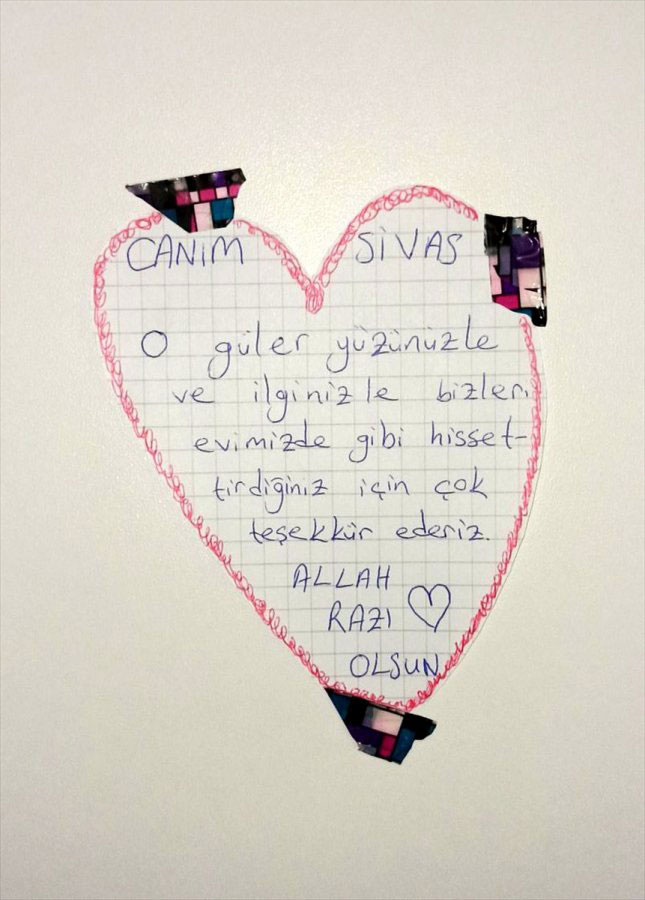 CANIM SİVAS
O güler yüzünüzle
ve ilginizle bizleri
evimizde gibi hisset-
tirdiğiniz için çok
teşekkür ederiz.
ALLAH
RAZI ♡
OLSUN